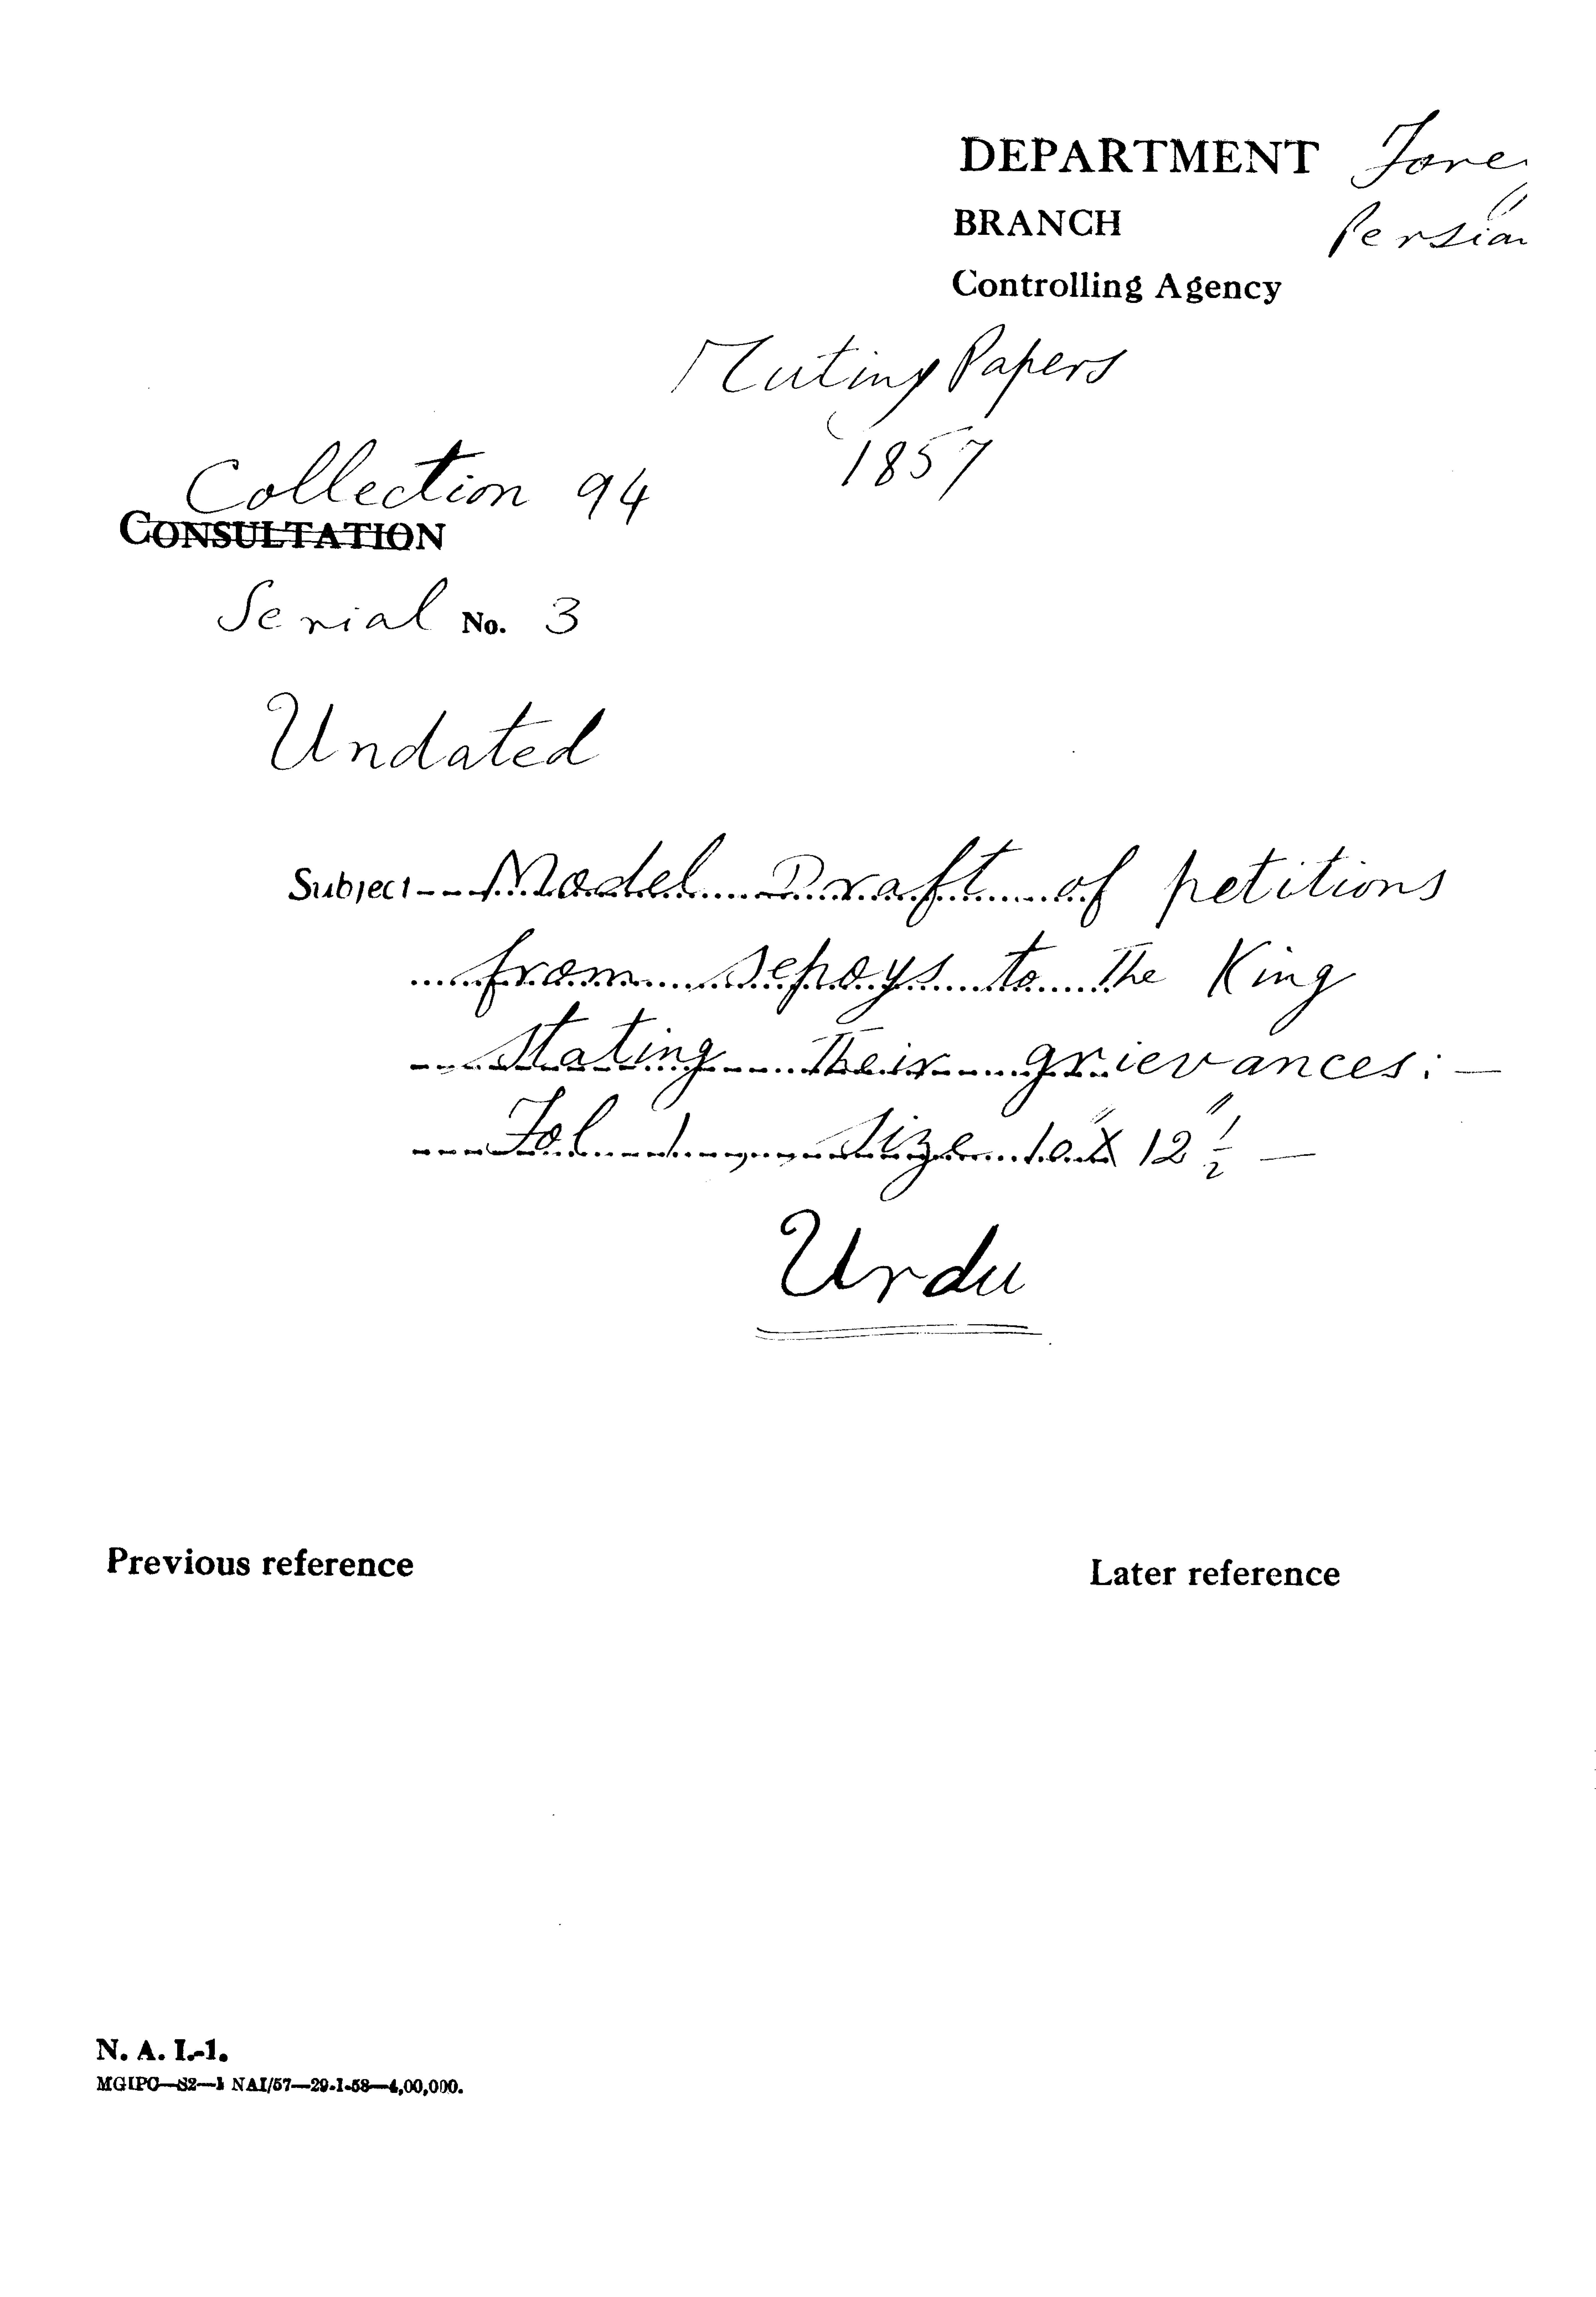 DEPARTMENT Fore
BRANCH Persian
Controlling Agency
Mutiny Papers
1857
Collection 94
CONSULTATION
Serial No. 3
Undated
Subject -- Model Draft of petitions
from sepoys to The King
stating Their grievances: —
Fol 1, size 10" X 12 1/2" —
Urdu
Previous reference
Later reference
N. A. I.-1.
MGIPC—S2—1 NAI/57—29-1-58—4,00,000.